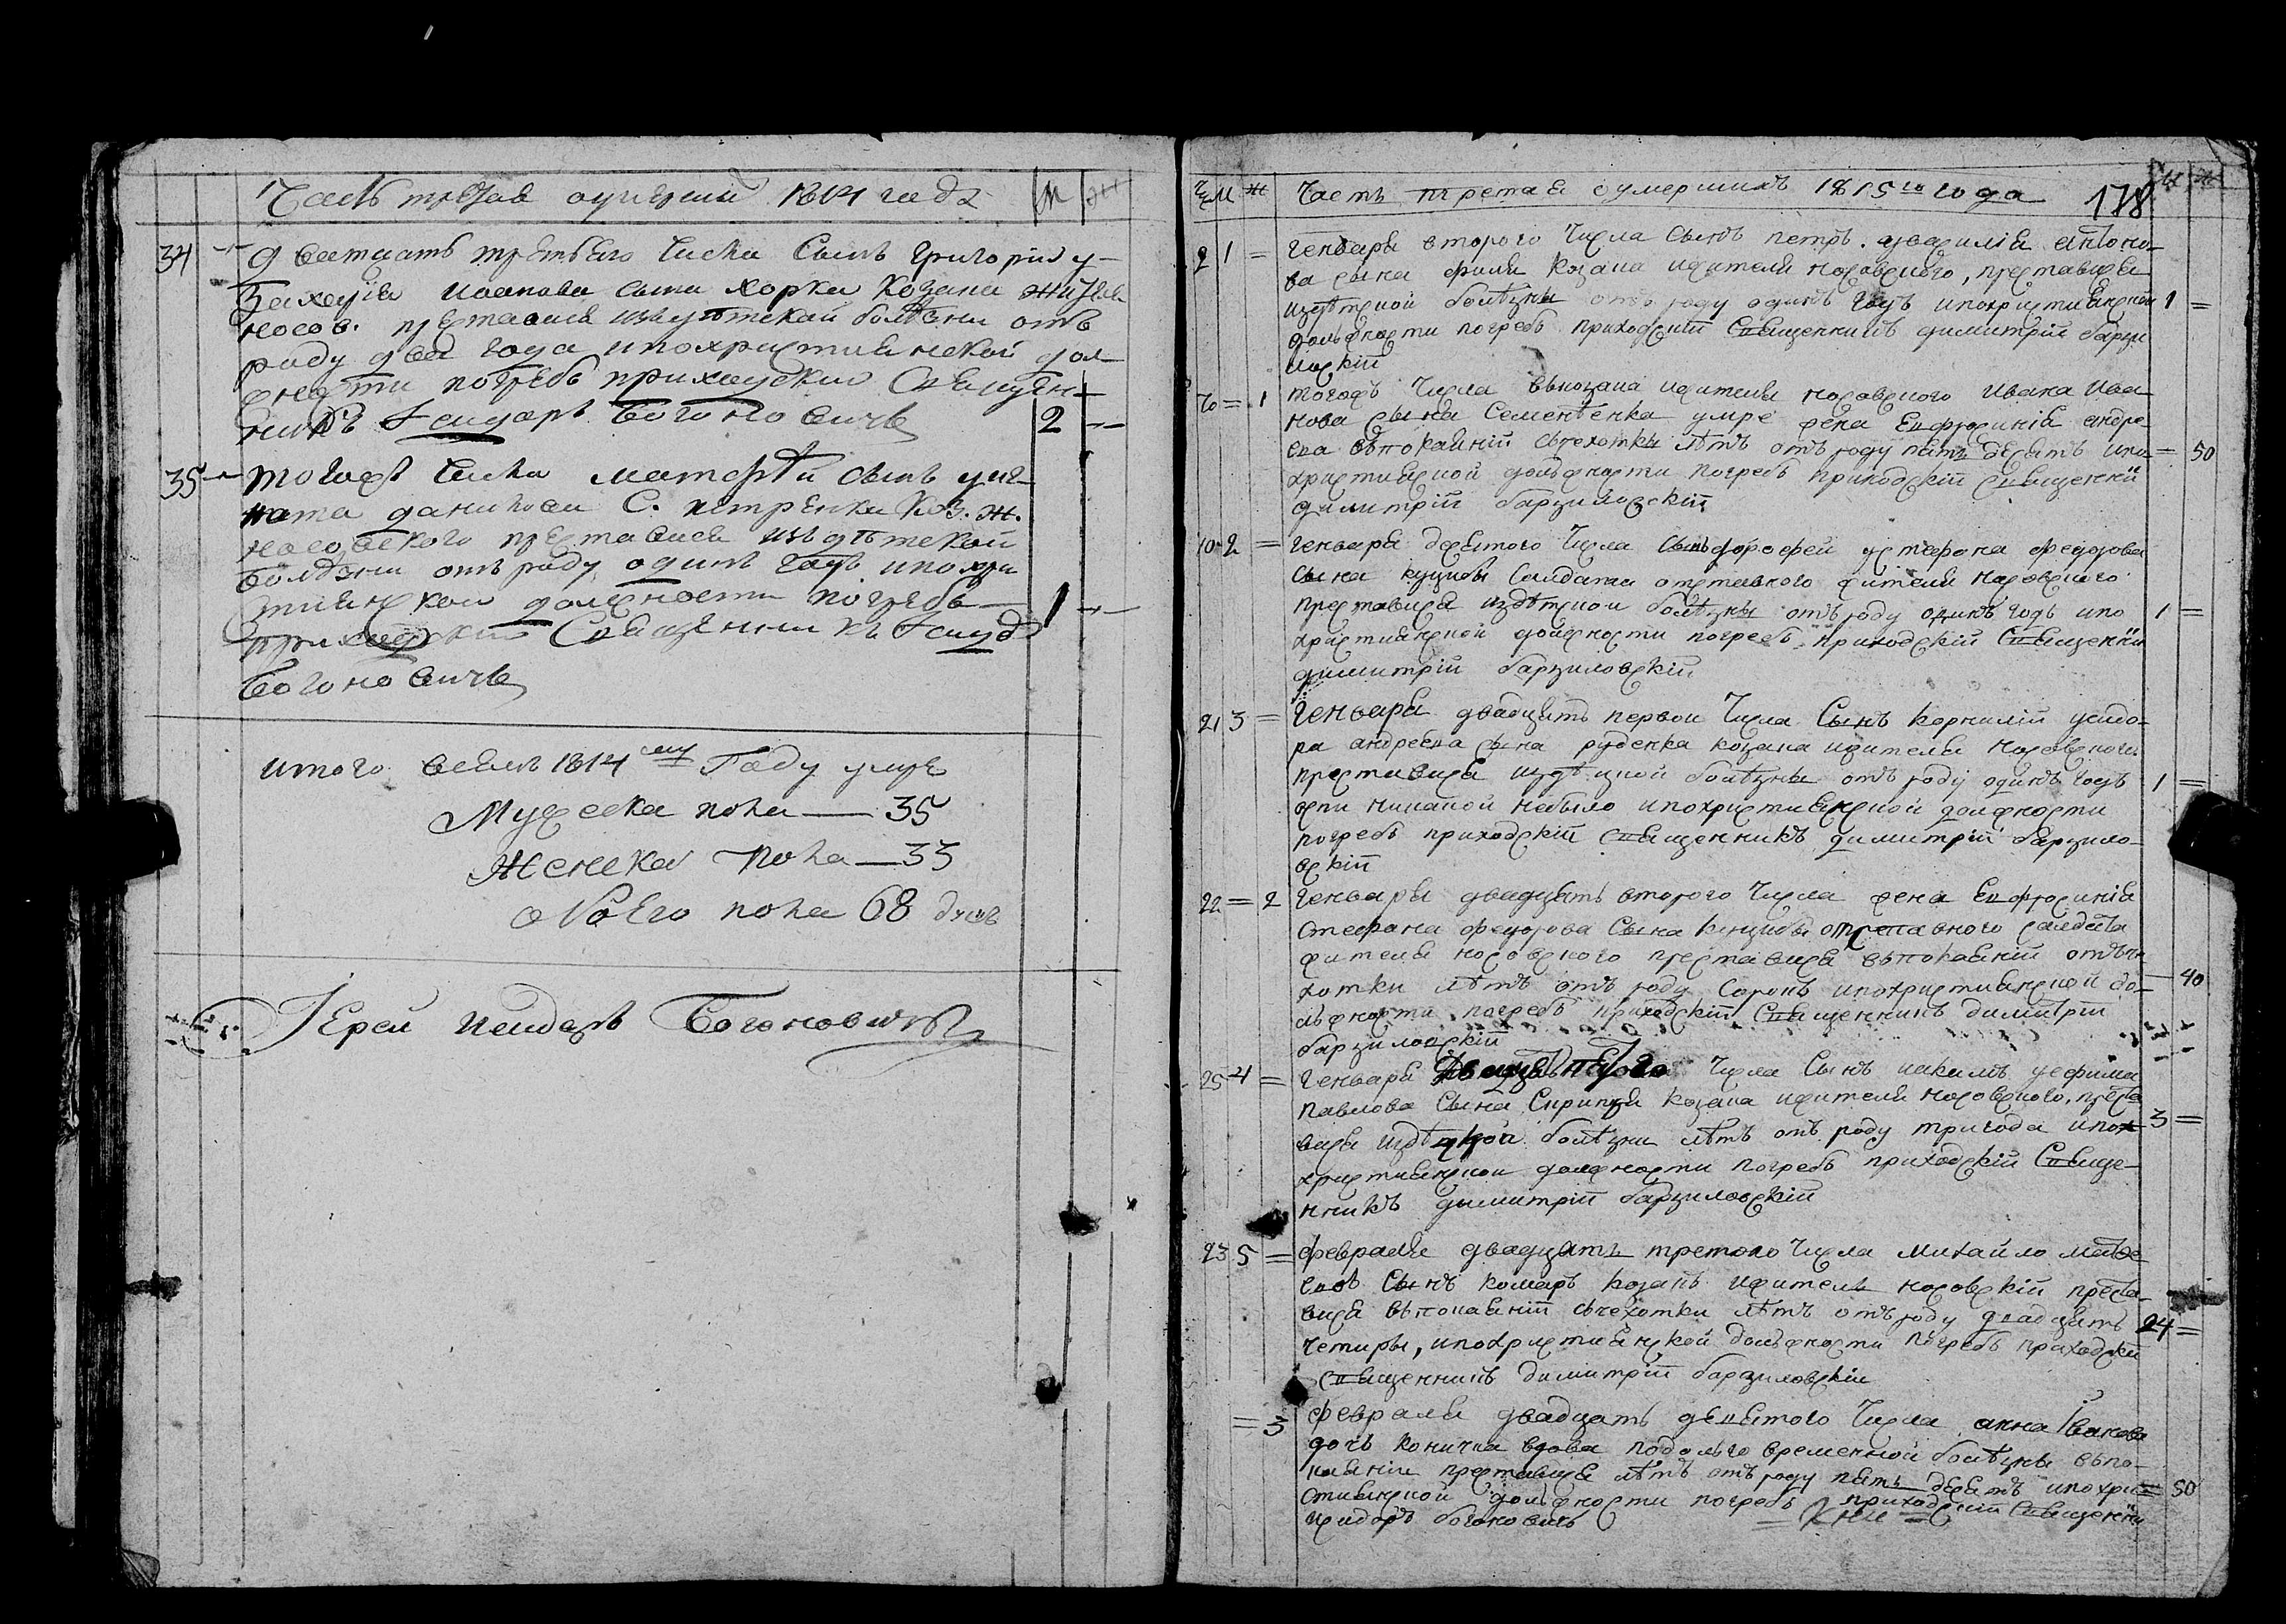 Часть третая о умерший 1814 года М Ж
34 — Дватцать третьего числа сынъ Григорий у
Захария Иоанова сына Хорка козака жителя
носов. преставися изъ детской болезни отъ
роду два года и по христианской дол-
жности погребъ приходский священ-
никъ Исидоръ Богоновичъ 2 —
35 — того ж числа Матфей сынъ у Иг-
ната Данилова С. Петренка Коз. ж.
носовского преставися изъ детской
болезни отъ роду одинъ годъ и по хри
стианской должности погребъ 1 —
приходский священникъ Исид
Богоновичъ
итого в семъ 1814 му Году умре
Мужеска пола — 35
Женска пола — 33
обоего пола 68 душъ
Іерей Исидоръ Богоновичъ
Ч М Ж Часть третая о умершихъ 1815 го года 178 М Ж
2 1 = Генваря второго числа сынъ Петръ. у Василія Антоно-
ва сына Филя козака жителя носовского, преставися
из детской болѣзны отъ роду одинъ годъ и по христианской 1 =
дольжности погребъ приходскій священникъ Димитрій Барзи
ловскій
= 1 того ж числа в козака жителя носовского Ивана Ива
нова сына Семенѣнка умре жена Евфросиніа Андре
ева въ покаяніи съ чехотки лѣтъ отъ роду пять десятъ и по = 50
христианской дольжности погребъ приходскій священни
Димитрій Барзиловскій
10 2 = Генваря десятого числа сынъ Дорофей у Стефана Федорова
сына Куцибы солдата отставного жителя носовского
преставися из дѣтской болѣзны отъ роду одинъ годъ и по 1 =
христианской должности погребъ приходскій священни
Димитрій Барзиловскій
21 3 = Генваря двадцать первои числа сынъ Корнилій у Сидо-
ра Андреева сына Руденка козака жителя носовского
преставися из дѣцкой болѣзны отъ роду одинъ годъ 1 =
оспи ниякой небыло и по христианской должности
погребъ приходскій священникъ Димитрій Барзило-
вскій
22 = 2 Генваря двадцять второго числа жена Евфросиніа
Стефана Федорова сына Куцибы отставного салдата
жителя носовского преставися въ покаяніи отъ че
хотки лѣтъ отъ роду сорокъ и по христианской до- — 40
льжности погребъ приходскій священникъ Димитрій
Барзиловскій
25 4 = Генваря двацать пятого числа сынъ Иакимъ у Ефима
Павлова сына Скрипця козака жителя носовского, преста
вися из дѣцкой болѣзни лѣтъ отъ роду три года и по 3 =
христианской должности погребъ приходскій священ-
никъ Димитрій Барзиловскій
23 5 = Февраля двадцать третого числа Михайло Матве
евъ сынъ Комаръ козакъ жителъ носовскій преста-
вися въ покаяніи съ чехотки лѣтъ отъ роду двадцять 24 =
четиры, и по христианской дольжности погребъ приходски
священникъ Димитрій Барзиловскій
= 3 Февраля двадцать девятого числа Анна Іванова
дочь Коничка вдова по дольговременной болѣзны въ по-
каяніи преставися лѣтъ отъ роду пять десятъ и по хри = 50
стианской дольжности погребъ приходскій священни
Исидоръ Богоновичъ